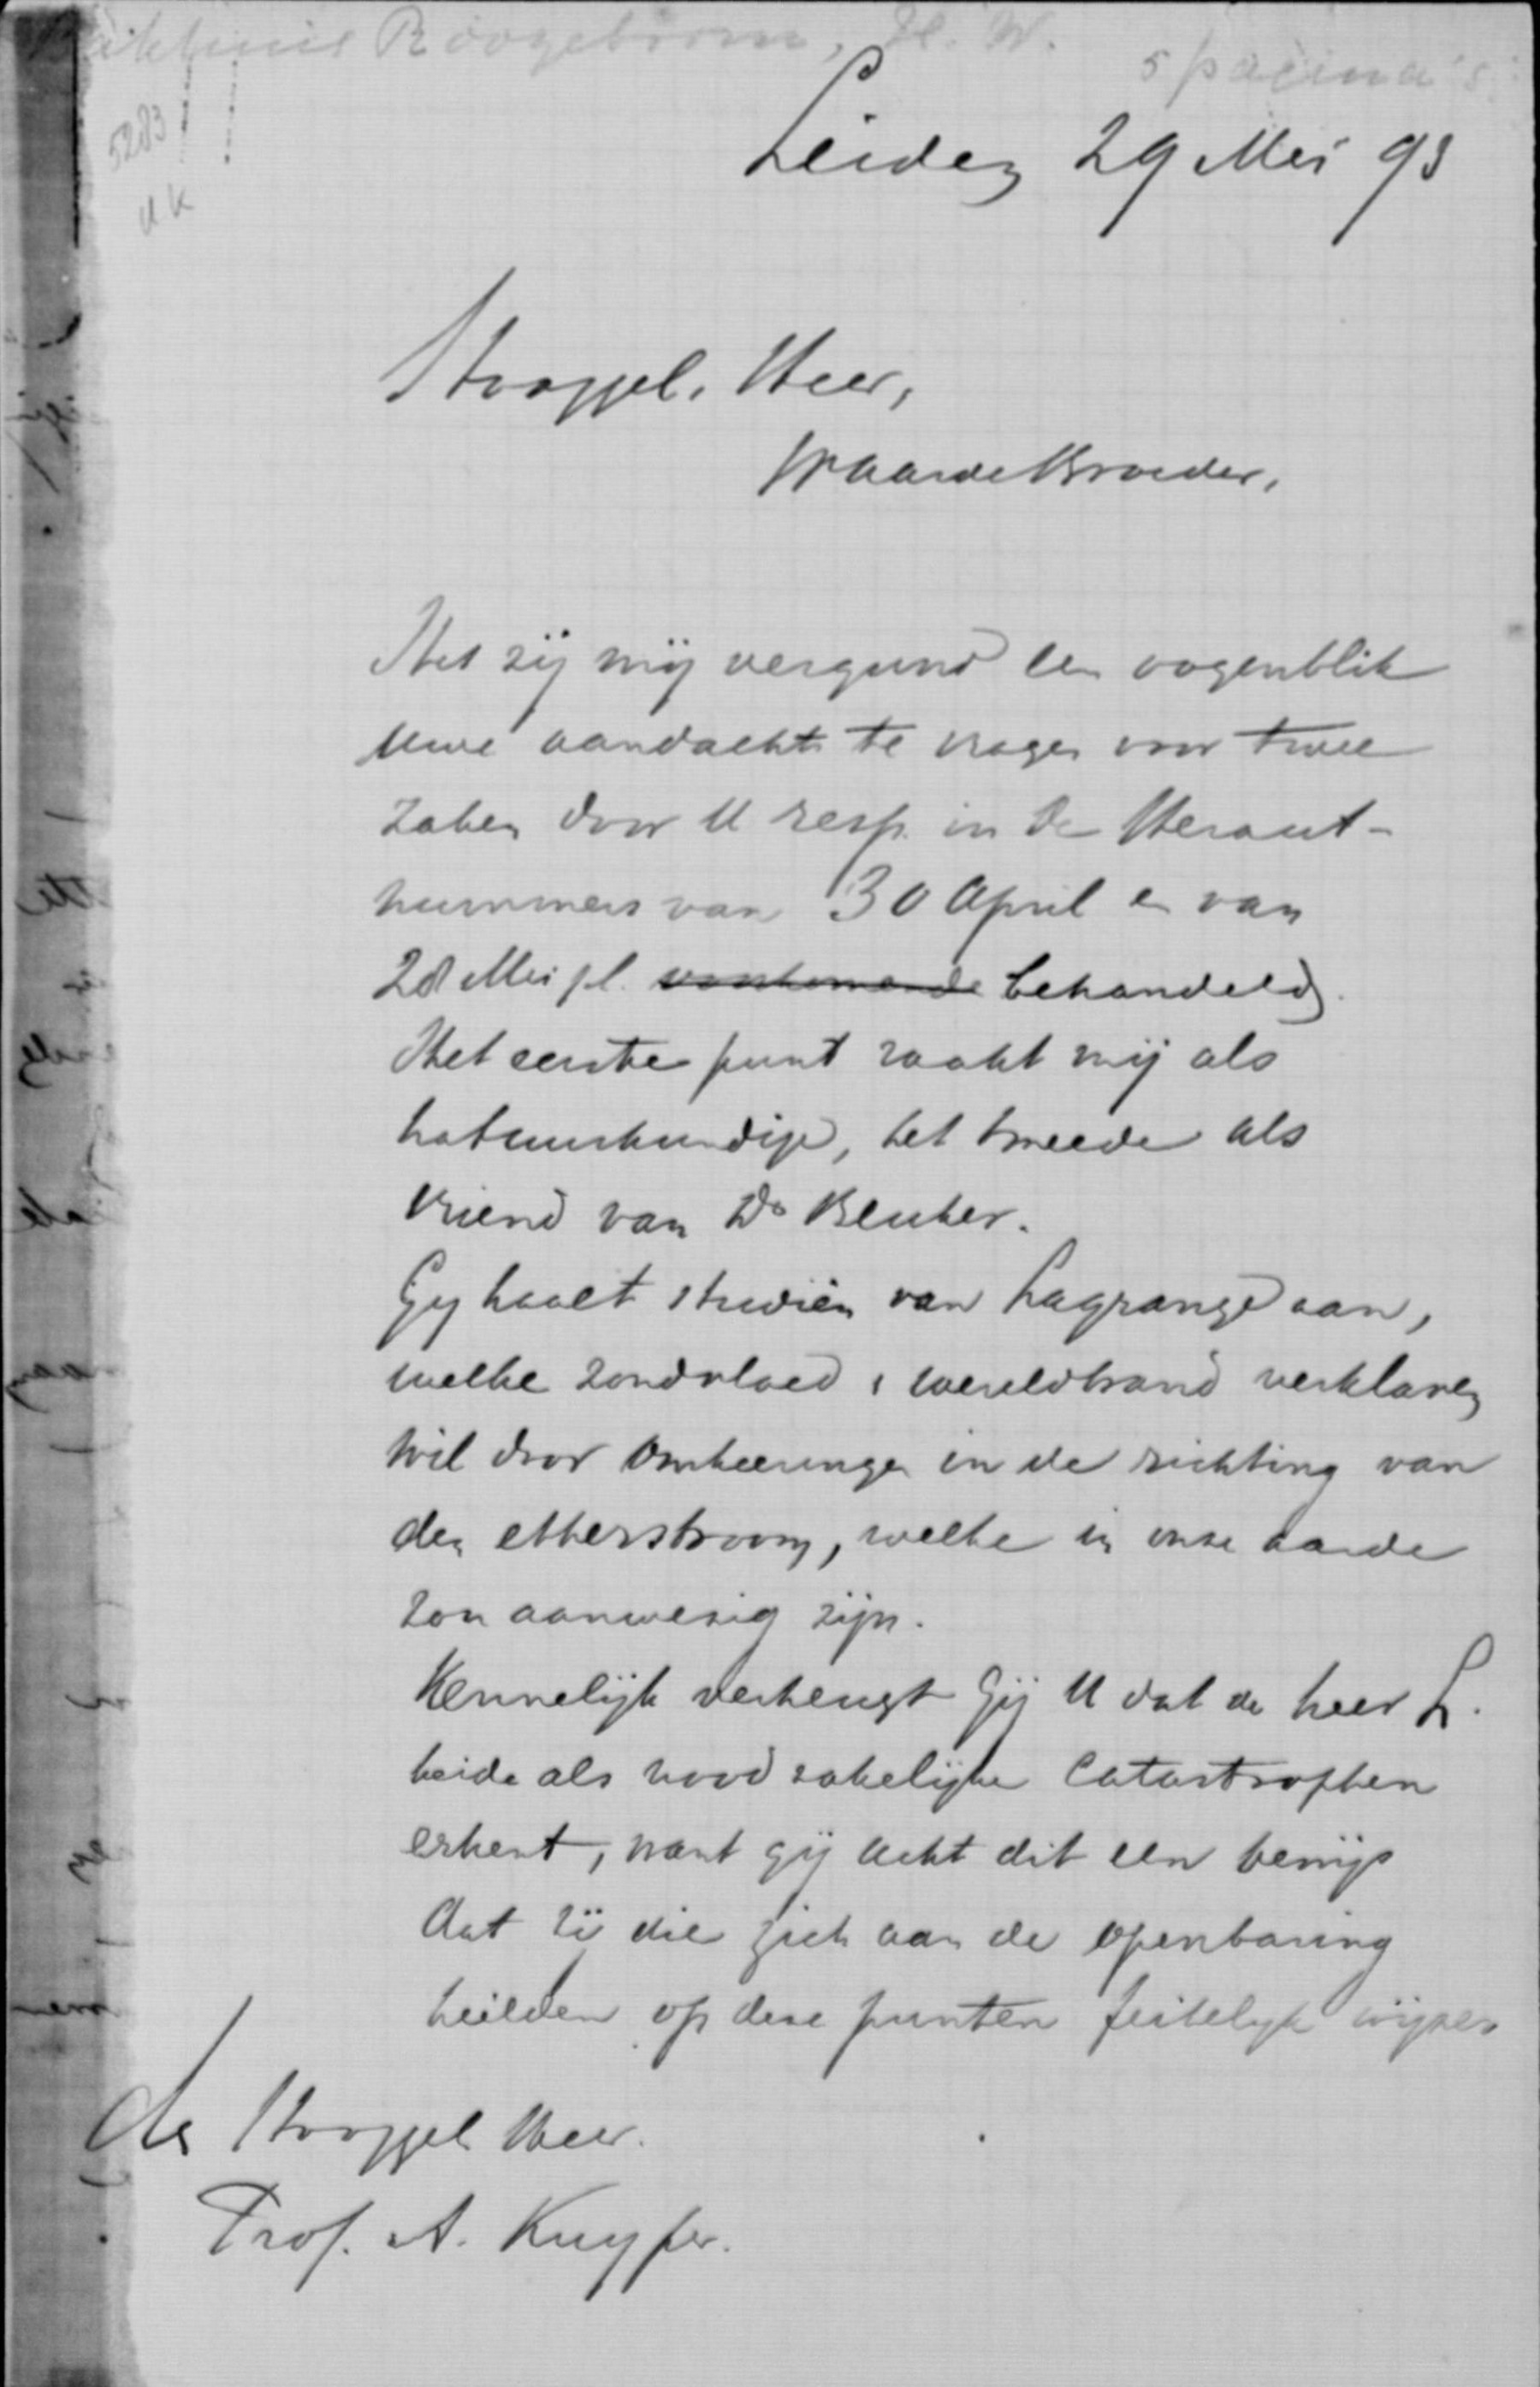 Roozeboom, H. W.
5 pacina's
5283
UK
Leiden 29 Mei 93
Hooggel. Heer,
Waarde Broeder,
Het zij mij vergund een oogenblik
uwe aandacht te vragen voor twee
zaken door U resp. in de Heraut-
nummers van 30 April en van
28 Mei jl. voorkomende behandeld.
Het eerste punt raakt mij als
natuurkundige, het tweede als
vriend van Ds Beuker.
Gij haalt studiën van Lagrange aan,
welke zondvloed & wereldbrand verklaren
wil door omkeeringen in de richting van
den etherstroom, welke in onze aarde
zou aanwezig zijn.
Kennelijk verheugt Gij U dat de heer L.
beide als noodzakelijke Catastrophen
erkent, want gij acht dit een bewijs
dat zij die zich aan de openbaring
hielden op deze punten feitelijk wijzer
den Hooggel Heer.
Prof. A. Kuyper.